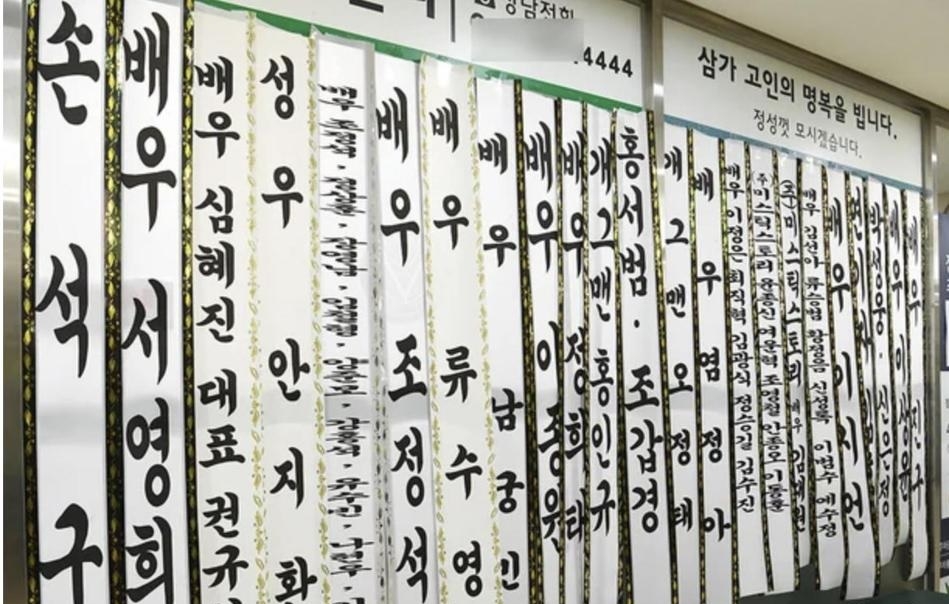 4444
삼가 고인의 명복을 빕니다.
정성껏 모시겠습니다.
손석구
배우 서영희
배우 심혜진 대표 권규
성우 안지환
배우 조정석
배우 류수영
배우 남궁민
배우 이종원
배우 정희태
개그맨 홍인규
홍서범 · 조갑경
개그맨 오정태
배우 염정아
배우 이정은 최직혁 김광식 정승길 김수진
(주)미스틱스토리 윤종신 여운혁 조영철 안종오 이동훈
(주)미스틱스토리 배우 김혜원
배우 김선아 류승범 황정음 신성록 이범수 예수정
배우 이시언
박성웅 · 신은정
배우 이상윤
배우 진구